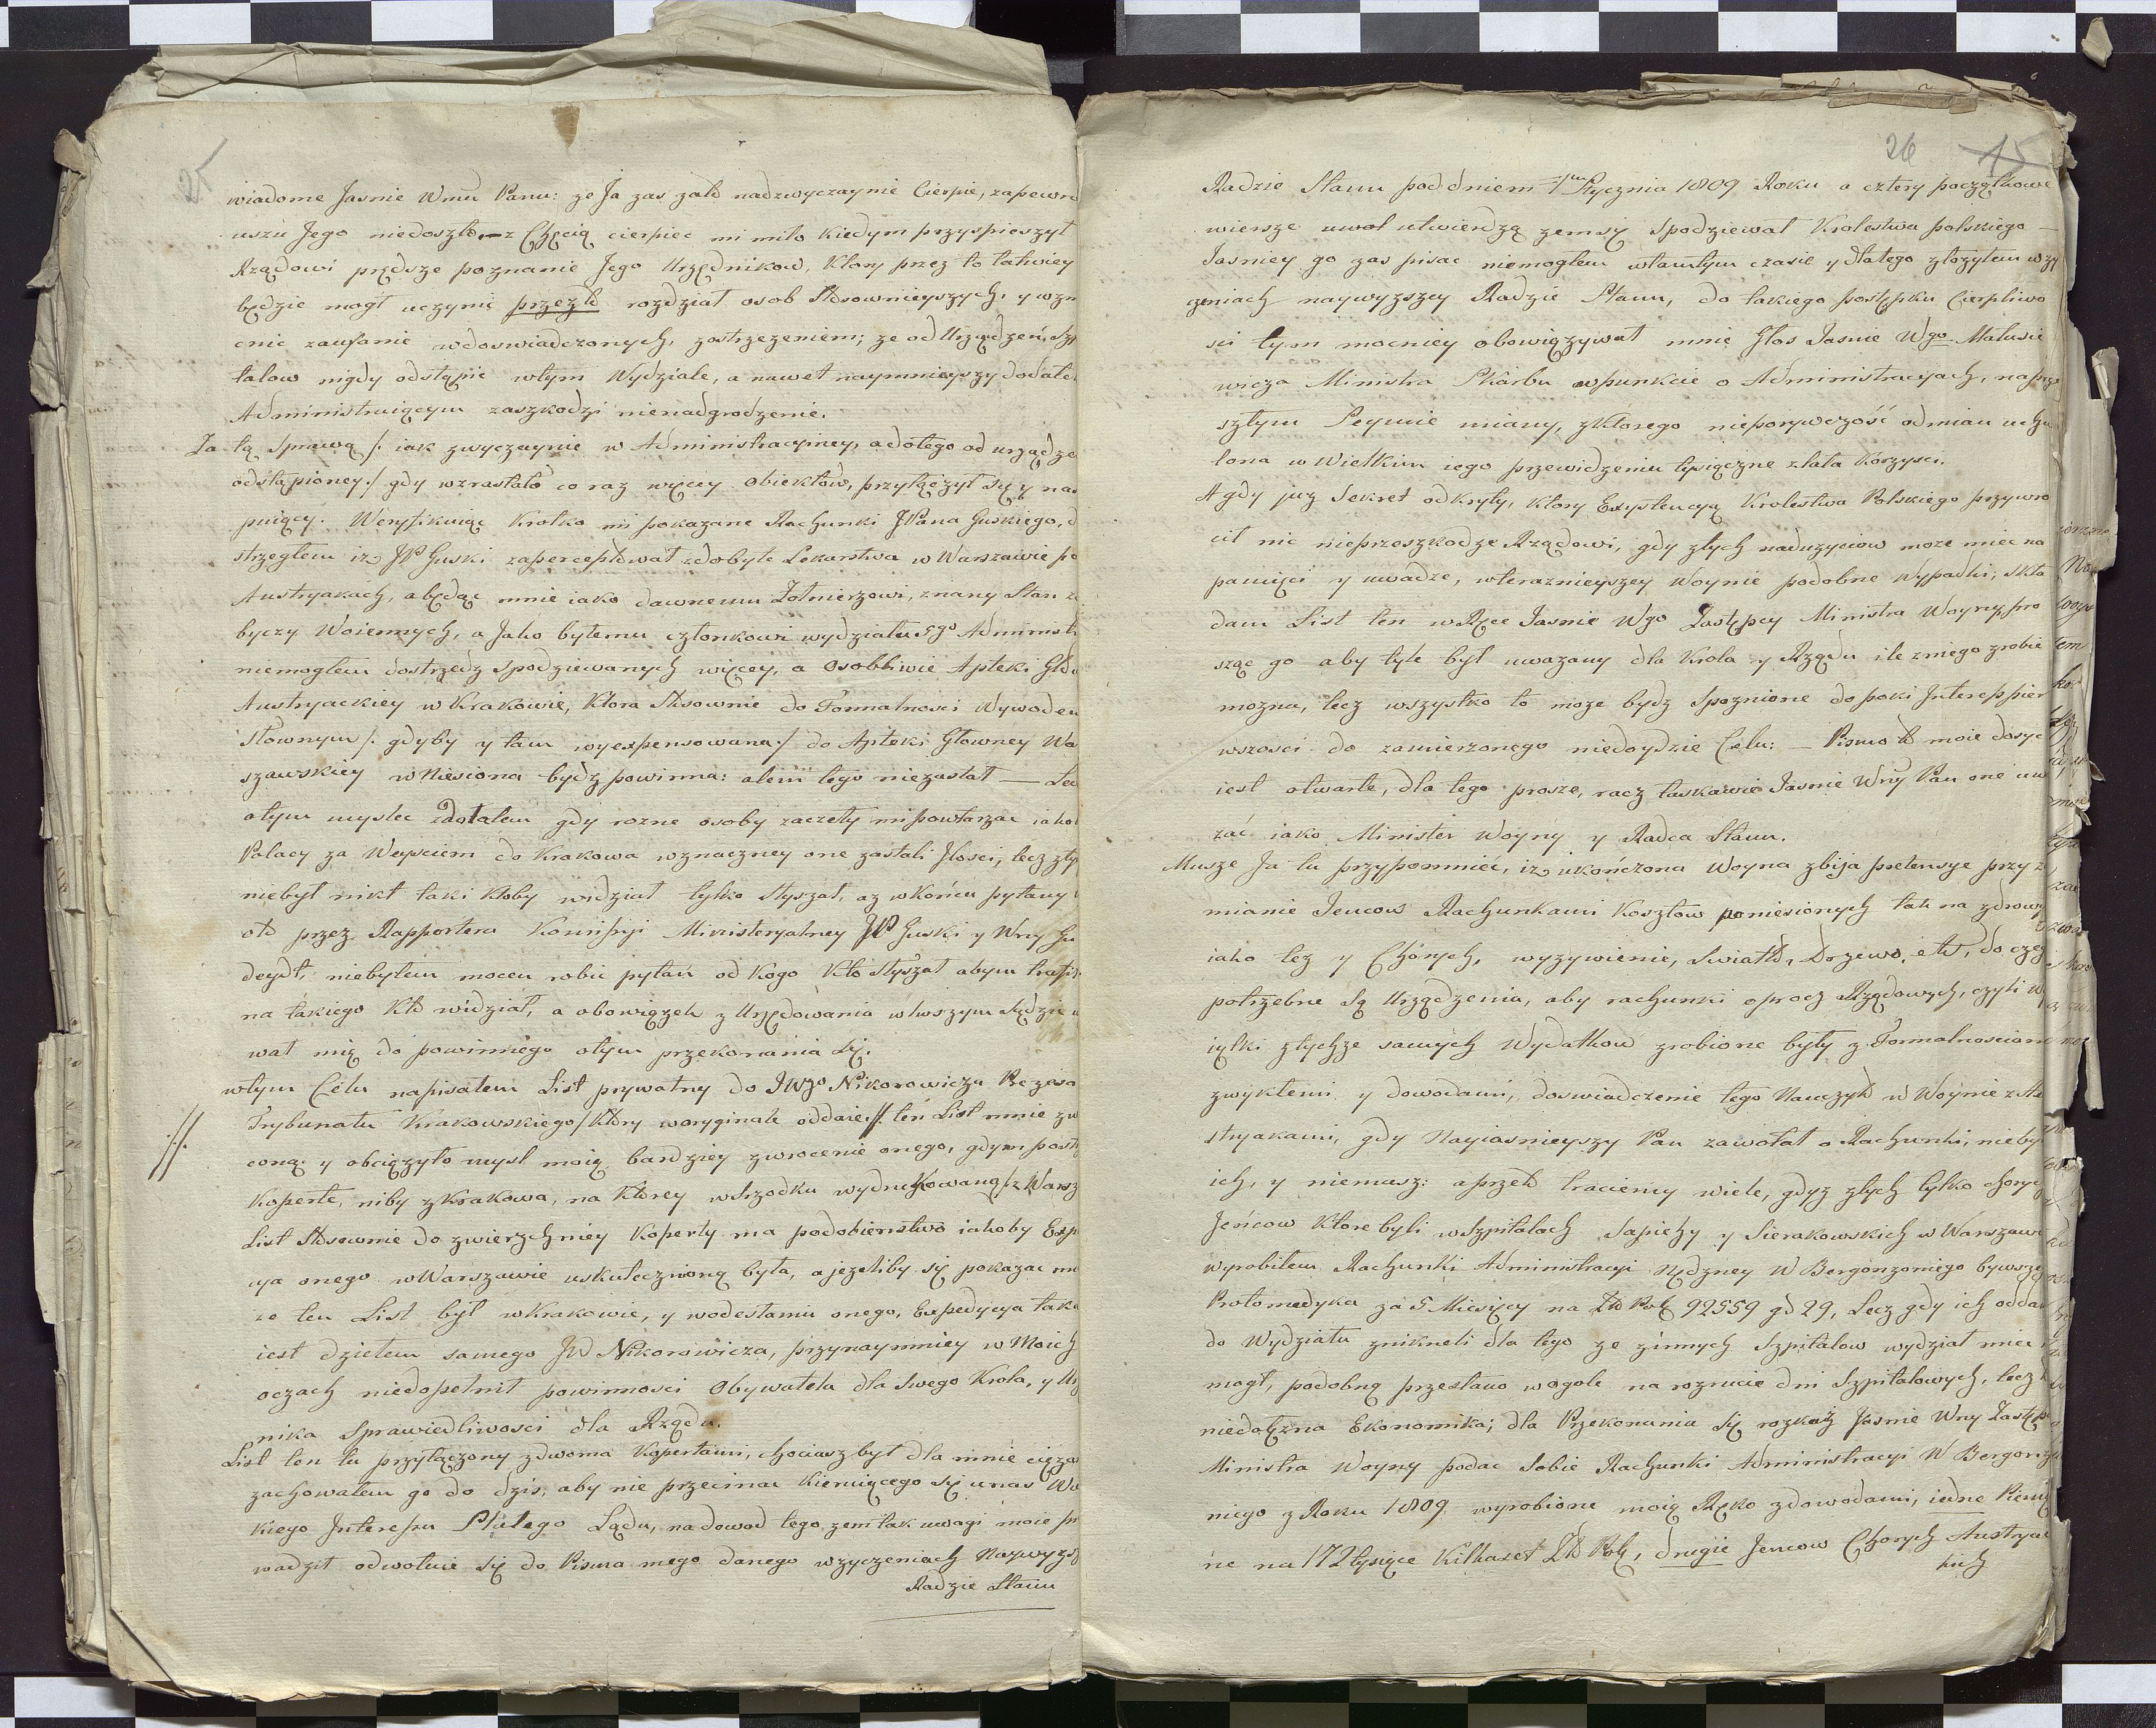 25
wiadome Jasnie Wmu Panu: ze Ja zas zato nadzwyczaynie Cierpię, zapewne
uszu Jego niedoszło — z Chęcią cierpiec mi miło kiedym przyspieszył
Rządowi prędsze poznanie Jego Urzędnikow, Ktory przez to łatwiey
będzie mogł uczynic przezto rozdział osob Stosownieyszych, y wzn
cnic zaufanie wdoswiadczonych, zastrzezeniem; ze od Urządzeń Szp
talow nigdy odstąpic wtym Wydziale, a nawet naymnieyszy dodatek
Administruiącym zaszkodzi nienadgrodzenie.
Za tą Sprawą /: iak zwyczaynie w Administracyiney, adotego od urządze
odstąpioney :/ gdy wzrastało co raz więcey obiektow, przyłączył się y nas
puiący. Weryfikuiąc krotko mi pokazane Rachunki JPana Guskiego, d
strzegłem iz JP Guski zaperceptował zdobyte Lekarstwa w Warszawie po
Austryakach, a będąc mnie iako dawnemu Zołnierzowi, znany Stan z
byczy Woiennych, a Jako byłemu członkowi wydziału 5go Administr
niemogłem dostrzedz spodziewanych więcey, a osobliwie Apteki Głów
Austryackiey w Krakowie, Ktora Stosownie do Formalnosci Wywodem
Słownym /: gdyby y tam wyexpensowana :/ do Apteki Głowney Wa
szawskiey wniesiona bydz powinna: alem tego niezastał — Lec
otym myslec zdołałem gdy rozne osoby zaczeły mi powtarzac iakob
Polacy za Weysciem do Krakowa wznaczney one zastali Jlosci, lecz zty
niebył nikt taki ktoby widział tylko Słyszał, az wkońcu pytany
oto przez Rapportera Komissyi Ministeryalney JP Guski y Wny Gu
deydt, niebyłem mocen robic pytań od kogo Kto Słyszał abym trafił
na takiego Kto widział, a obowiązek z Urzędowania wtwszym Rzędzie w
wał mię do powinnego otym przekonania się.
wtym Celu napisałem List prywatny do JWgo Nikorowicza Prezesa
Trybunału Krakowskiego /: Ktory woryginale oddaie :/ ten List mnie zw
coną: y obciązyło mysl moię bardziey zwrocenie onego, gdym postr
Koperte, niby z Krakowa, na Ktorey wsrzodku wydrukowaną /: z Warsz
List Stosownie do zwierzchniey Koperty ma podobieństwo iakoby Exp
cya onego w Warszawie uskutecznioną była, a jezeliby się pokazac mi
ze ten List był w Krakowie, y wodesłaniu onego, Expedycya tak
iest dziełem samego JW Nikorowicza, przynaymniey w Moich
oczach niedopełnił powinnosci Obywatela dla Swego Krola, y Ur
nika Sprawiedliwosci dla Rządu.
List ten tu przyłączony zdwoma Kopertami, chociasz był dla mnie cięza
zachowałem go do dzis, aby nie przecinac Kieruiącego się unas Wo
kiego Jnteressu Stałego Lądu, na dowod tego zem tak uwagi moie pr
wadził odwołuie się do Pisma mego danego wzyczeniach Naywyzsz
Radzie Stanu
26 15
Radzie Stanu pod dniem 1m Stycznia 1809 Roku a cztery początkowe
wiersze uwag utwierdzą zemsię Spodziewał Krolestwa polskiego —
Jasniey go zas pisac niemogłem wtamtym czasie y dlatego złozyłem wzy
czeniach naywyzszey Radzie Stanu, do takiego postępku Cierpliwo
sci tym mocniey obowięzywał mnie Głos Jasnie Wgo Matusie
wicza Ministra Skarbu wpunkcie o Administracyach, na prze
szłym Seymie miany, zktorego nieporywczość odmian uchw
lona w Wielkim iego przewidzeniu tysiączne zlała Korzysci.
A gdy juz Sekret odkryty, ktory Exystencyą Krolestwa Polskiego przywro
cił nic nieprzeszkodze Rządowi, gdy złych naduzyciow moze miec na
pamięci y uwadze, wterazniejszey Woynie podobne Wypadki, skła
dam List ten w Ręce Jasnie Wgo Zastępcy Ministra Woyny, pro
sząc go aby tyle był uwazany dla Krola y Rządu ile zniego zrobic
mozna, lecz wszystko to moze bydz Spoznione dopoki Jnteress pier
wszosci do zamierzonego niedoydzie Celu: — Pismo to moie dosyc
iest otwarte, dla tego prosze, racz łaskawie Jasnie Wny Pan one uw
zać iako Minister Woyny y Radca Stanu.
Musze Ja tu przypomniec, iz ukończona Woyna zbija pretensye przy z
mianie Jencow Rachunkami Kosztow poniesionych tak na zdrowy
iako tez y Chorych, wyzywienie, Swiatło, Drzewo, etc, do czeg
potrzebne są Urządzenia, aby rachunki oprocz Rządowych, czyli w
iątki ztychze samych Wydatkow zrobione były z Formalnosciam
zwykłemi y dowodami, doswiadczenie tego Nauczyło w Woynie z Au
stryakami, gdy Nayiasnieyszy Pan zawołał o Rachunki, nieby
ich, y niemasz: a przeto traciemy wiele, gdyz złych tylko chorych
Jeńcow Ktore byli wSzpitalach Sapiehy y Sierakowskich w Warszawie
wyrobiłem Rachunki Administracyi Nędzney W Bergonzoniego bywsze
Protomedyka za 5 Miesięcy na Zło Pol 92559 gr 29, Lecz gdy ich oddał
do Wydziału znikneli dla tego ze zinnych Szpitalow wydział miec
mogł, podobną przesłano wogole na roznucie dni Szpitalowych, lecz
niedołęzna Ekonomika; dla Przekonania się rozkaz Jasnie Wny Zastęp
Ministra Woyny podac Sobie Rachunki Administracyi W Bergonzo
niego z Roku 1809 wyrobione moią Ręko zdowodami, iedne Pienię
ne na 172 tysiące Kilkaset Zło Pol, drugie Jencow Chorych Austryac
kich